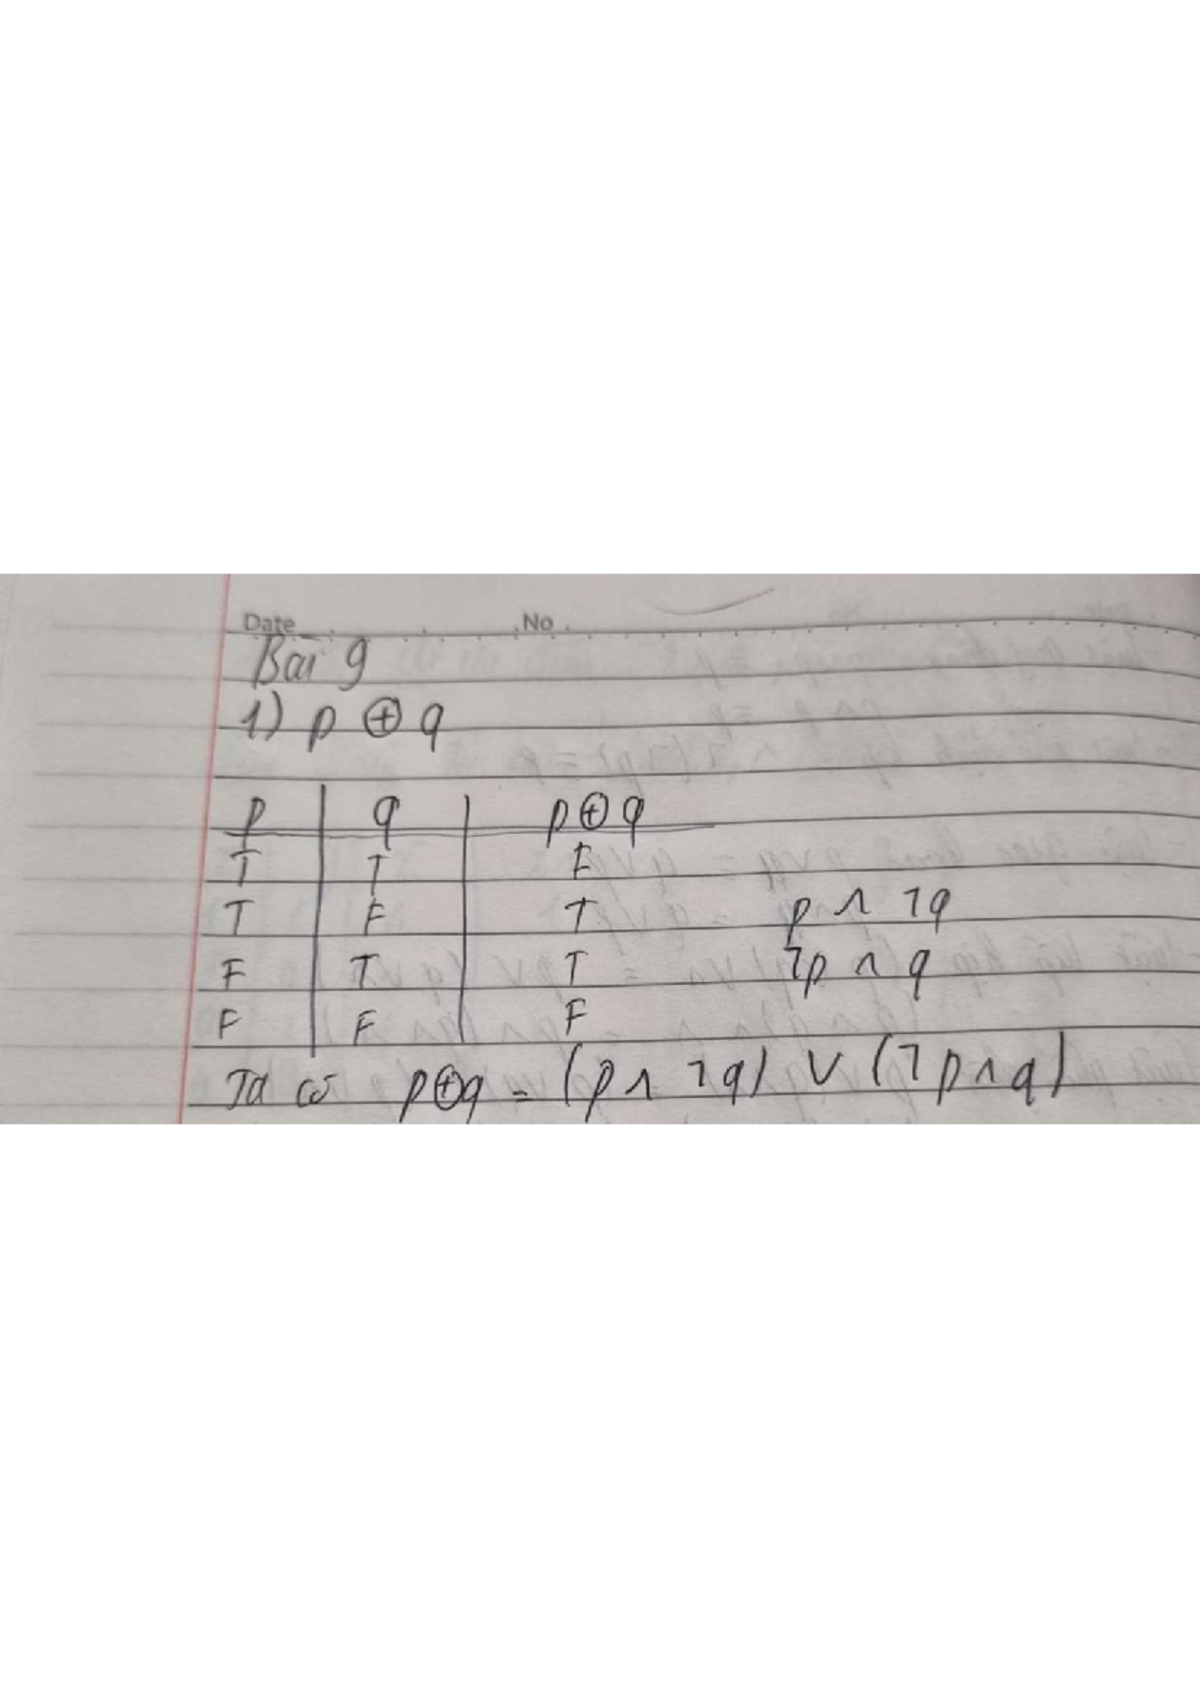 Date No
Bài 9
1) p ⊕ q
p q p⊕q
T T F
T F T p ∧ ¬q
F T T ¬p ∧ q
F F F
Ta có p⊕q = (p ∧ ¬q) ∨ (¬p ∧ q)